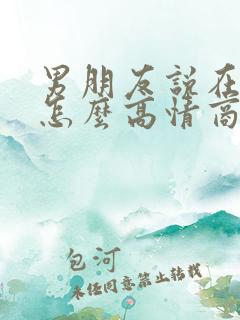 男朋友說在
怎麼高情商
包河
未经同意禁止转载